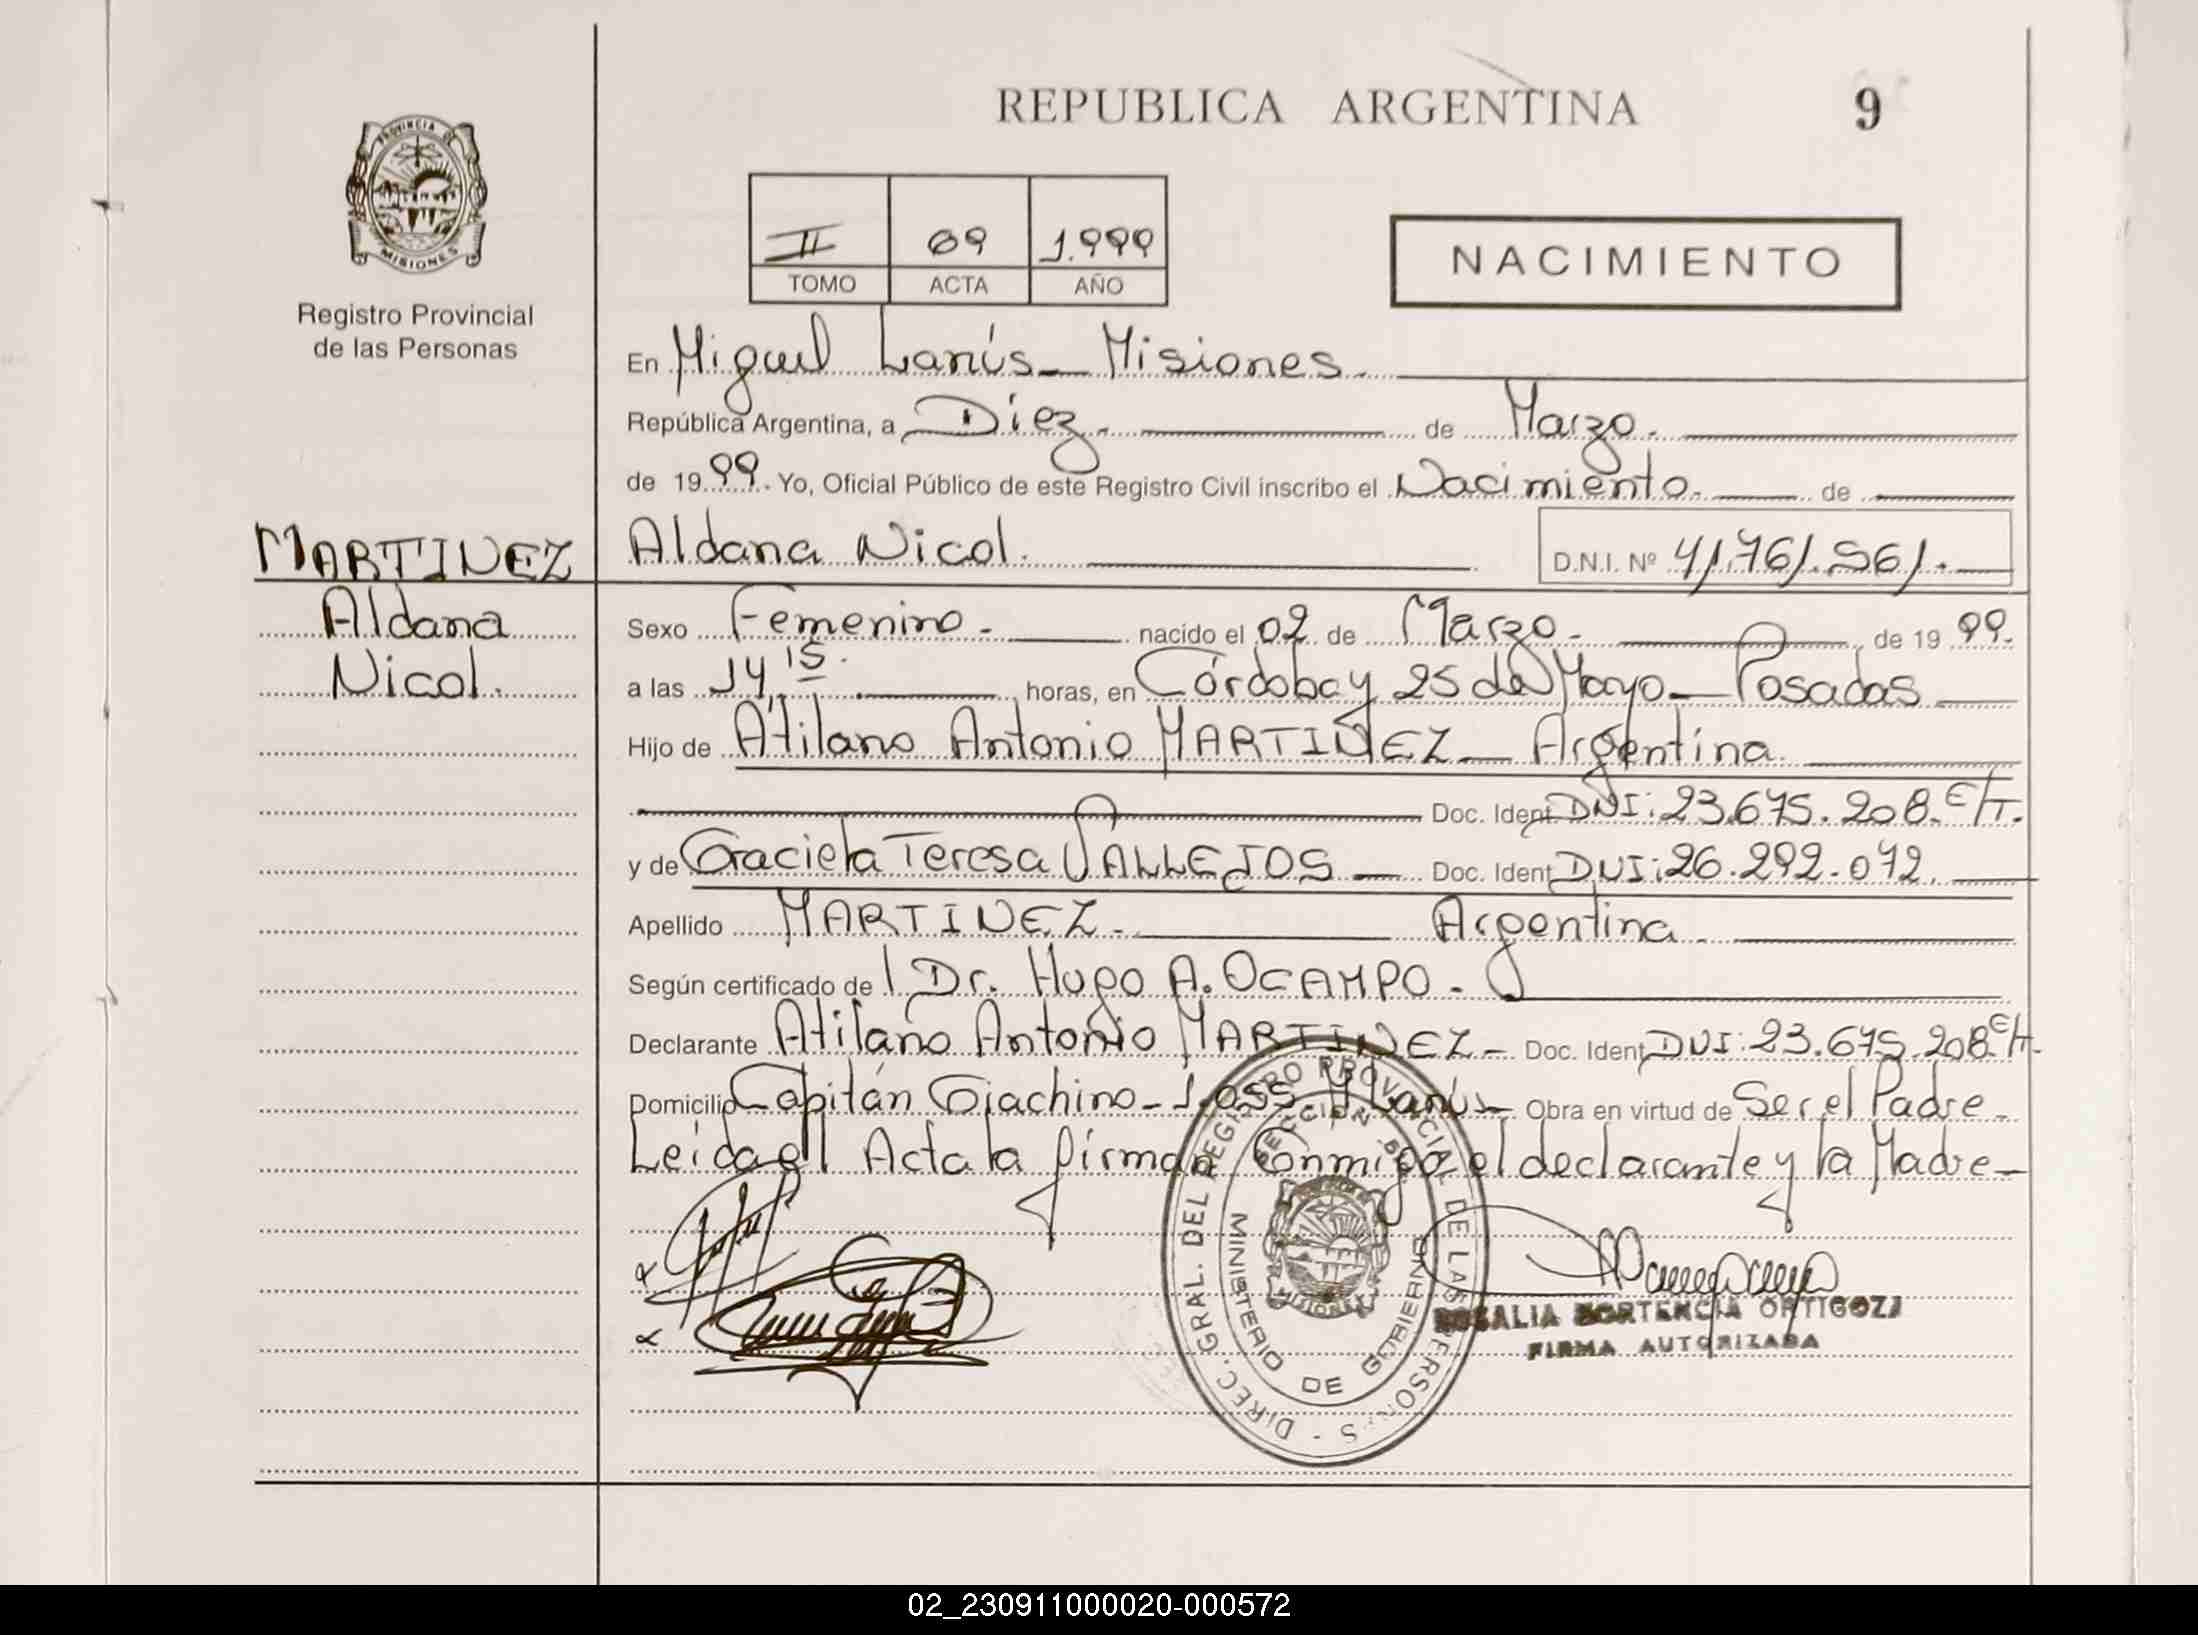 REPUBLICA ARGENTINA
9
PROVINCIA DE
MISIONES
Registro Provincial
de las Personas
II 69 1.999
TOMO ACTA AÑO
NACIMIENTO
En Miguel Lanús - Misiones.
República Argentina, a Diez. de Marzo.
de 1999. Yo, Oficial Público de este Registro Civil inscribo el Nacimiento. de
MARTINEZ
Aldana
Nicol.
Aldana Nicol. D.N.I. Nº 41.761.561.
Sexo Femenino. nacido el 02 de Marzo. de 1999.
a las 14,15. horas, en Córdoba y 25 de Mayo - Posadas
Hijo de Atilano Antonio MARTINEZ - Argentina.
Doc. Ident. DNI: 23.675.208. E/T.
y de Graciela Teresa VALLEJOS - Doc. Ident. DNI: 26.292.072.
Apellido MARTINEZ. Argentina.
Según certificado de l Dr. Hugo A. OCAMPO.
Declarante Atilano Antonio MARTINEZ - Doc. Ident. DNI: 23.675.208. E/T.
Domicilio Capitán Giachino - 1.055. M Lanús - Obra en virtud de Ser el Padre -
Leída el Acta la firman Conmigo el declarante y la Madre -
DIREC. GRAL. DEL REGISTRO PROVINCIAL DE LAS PERSONAS
MINISTERIO DE GOBIERNO
MISIONES
ROSALIA HORTENCIA ORTIGOZA
FIRMA AUTORIZADA
02_230911000020-000572